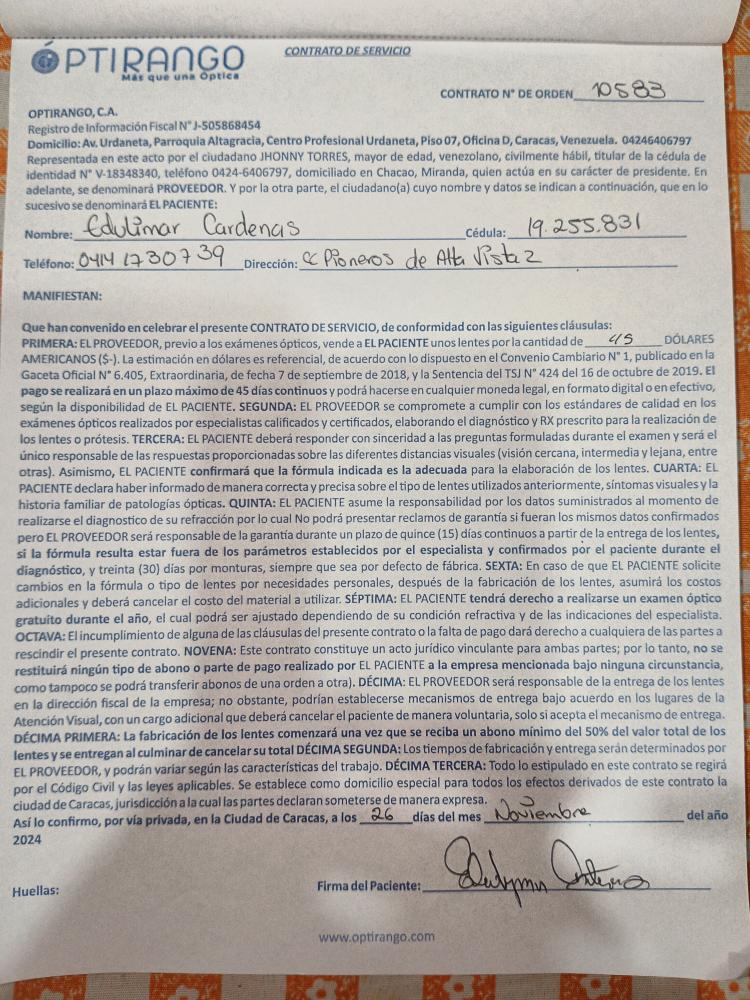 ÓPTIRANGO
Más que una Óptica
CONTRATO DE SERVICIO
CONTRATO N° DE ORDEN 10583
OPTIRANGO, C.A.
Registro de Información Fiscal N° J-505868454
Domicilio: Av. Urdaneta, Parroquia Altagracia, Centro Profesional Urdaneta, Piso 07, Oficina D, Caracas, Venezuela. 04246406797
Representada en este acto por el ciudadano JHONNY TORRES, mayor de edad, venezolano, civilmente hábil, titular de la cédula de
identidad N° V-18348340, teléfono 0424-6406797, domiciliado en Chacao, Miranda, quien actúa en su carácter de presidente. En
adelante, se denominará PROVEEDOR. Y por la otra parte, el ciudadano(a) cuyo nombre y datos se indican a continuación, que en lo
sucesivo se denominará EL PACIENTE:
Nombre: Edulimar Cardenas Cédula: 19.255.831
Teléfono: 0414 1730739 Dirección: CC Pioneros de Alta Vista 2
MANIFIESTAN:
Que han convenido en celebrar el presente CONTRATO DE SERVICIO, de conformidad con las siguientes cláusulas:
PRIMERA: EL PROVEEDOR, previo a los exámenes ópticos, vende a EL PACIENTE unos lentes por la cantidad de 45 DÓLARES
AMERICANOS ($-). La estimación en dólares es referencial, de acuerdo con lo dispuesto en el Convenio Cambiario N° 1, publicado en la
Gaceta Oficial N° 6.405, Extraordinaria, de fecha 7 de septiembre de 2018, y la Sentencia del TSJ N° 424 del 16 de octubre de 2019. El
pago se realizará en un plazo máximo de 45 días continuos y podrá hacerse en cualquier moneda legal, en formato digital o en efectivo,
según la disponibilidad de EL PACIENTE. SEGUNDA: EL PROVEEDOR se compromete a cumplir con los estándares de calidad en los
exámenes ópticos realizados por especialistas calificados y certificados, elaborando el diagnóstico y RX prescrito para la realización de
los lentes o prótesis. TERCERA: EL PACIENTE deberá responder con sinceridad a las preguntas formuladas durante el examen y será el
único responsable de las respuestas proporcionadas sobre las diferentes distancias visuales (visión cercana, intermedia y lejana, entre
otras). Asimismo, EL PACIENTE confirmará que la fórmula indicada es la adecuada para la elaboración de los lentes. CUARTA: EL
PACIENTE declara haber informado de manera correcta y precisa sobre el tipo de lentes utilizados anteriormente, síntomas visuales y la
historia familiar de patologías ópticas. QUINTA: EL PACIENTE asume la responsabilidad por los datos suministrados al momento de
realizarse el diagnostico de su refracción por lo cual No podrá presentar reclamos de garantía si fueran los mismos datos confirmados
pero EL PROVEEDOR será responsable de la garantía durante un plazo de quince (15) días continuos a partir de la entrega de los lentes,
si la fórmula resulta estar fuera de los parámetros establecidos por el especialista y confirmados por el paciente durante el
diagnóstico, y treinta (30) días por monturas, siempre que sea por defecto de fábrica. SEXTA: En caso de que EL PACIENTE solicite
cambios en la fórmula o tipo de lentes por necesidades personales, después de la fabricación de los lentes, asumirá los costos
adicionales y deberá cancelar el costo del material a utilizar. SÉPTIMA: EL PACIENTE tendrá derecho a realizarse un examen óptico
gratuito durante el año, el cual podrá ser ajustado dependiendo de su condición refractiva y de las indicaciones del especialista.
OCTAVA: El incumplimiento de alguna de las cláusulas del presente contrato o la falta de pago dará derecho a cualquiera de las partes a
rescindir el presente contrato. NOVENA: Este contrato constituye un acto jurídico vinculante para ambas partes; por lo tanto, no se
restituirá ningún tipo de abono o parte de pago realizado por EL PACIENTE a la empresa mencionada bajo ninguna circunstancia,
como tampoco se podrá transferir abonos de una orden a otra). DÉCIMA: EL PROVEEDOR será responsable de la entrega de los lentes
en la dirección fiscal de la empresa; no obstante, podrían establecerse mecanismos de entrega bajo acuerdo en los lugares de la
Atención Visual, con un cargo adicional que deberá cancelar el paciente de manera voluntaria, solo si acepta el mecanismo de entrega.
DÉCIMA PRIMERA: La fabricación de los lentes comenzará una vez que se reciba un abono mínimo del 50% del valor total de los
lentes y se entregan al culminar de cancelar su total DÉCIMA SEGUNDA: Los tiempos de fabricación y entrega serán determinados por
EL PROVEEDOR, y podrán variar según las características del trabajo. DÉCIMA TERCERA: Todo lo estipulado en este contrato se regirá
por el Código Civil y las leyes aplicables. Se establece como domicilio especial para todos los efectos derivados de este contrato la
ciudad de Caracas, jurisdicción a la cual las partes declaran someterse de manera expresa.
Así lo confirmo, por vía privada, en la Ciudad de Caracas, a los 26 días del mes Noviembre del año
2024
Huellas: Firma del Paciente:
www.optirango.com